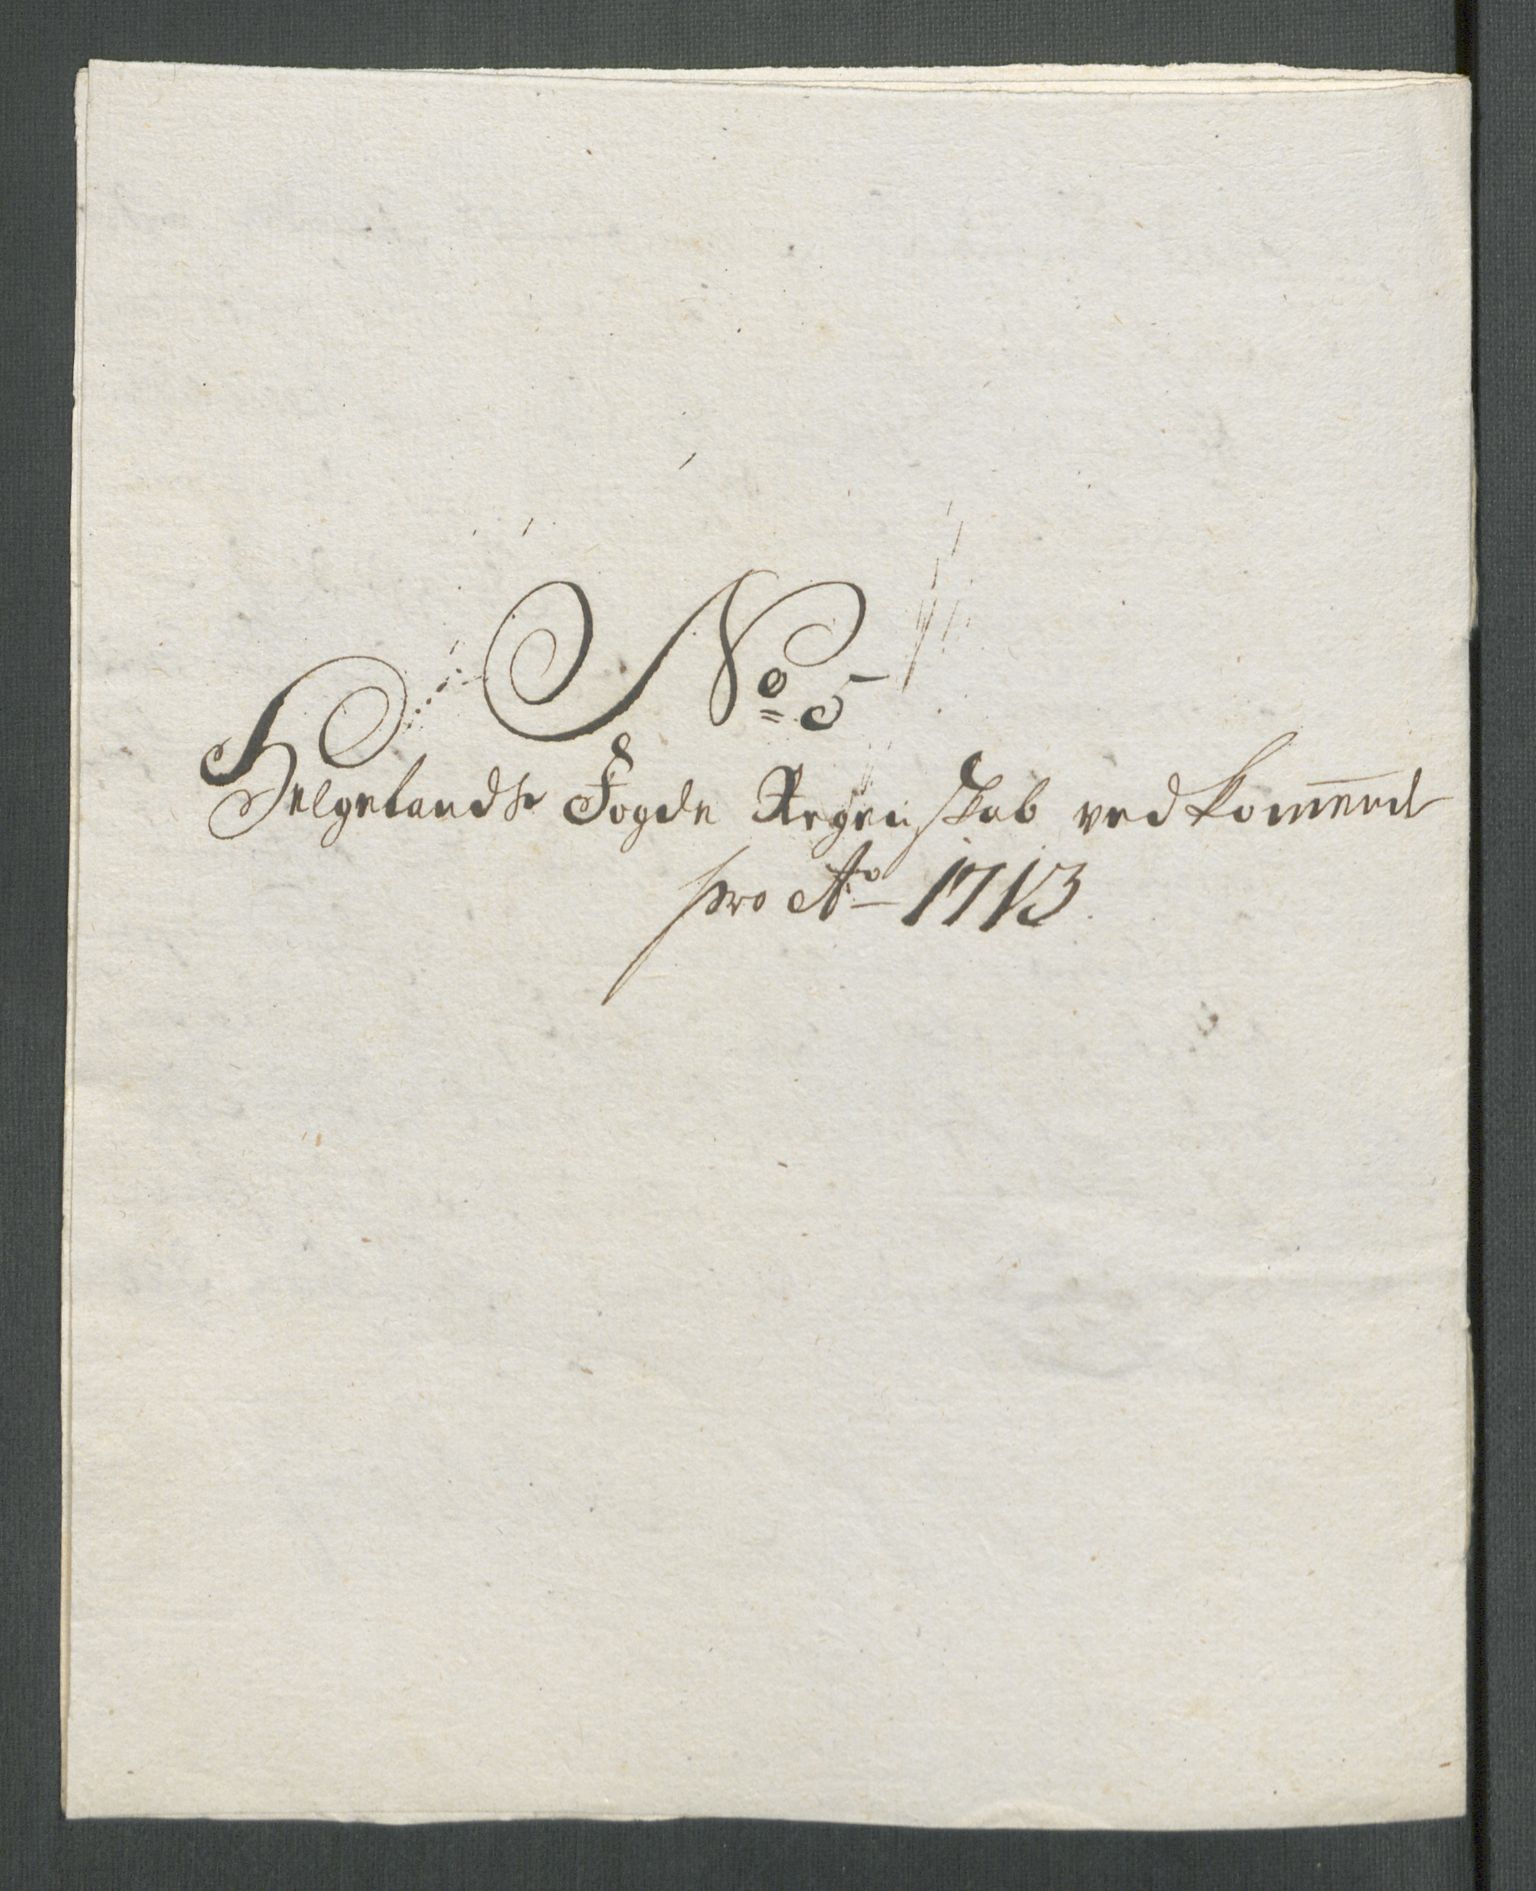 No 5
Helgelands Fogde Regenskab vedkom̅end
pro Ao 1713